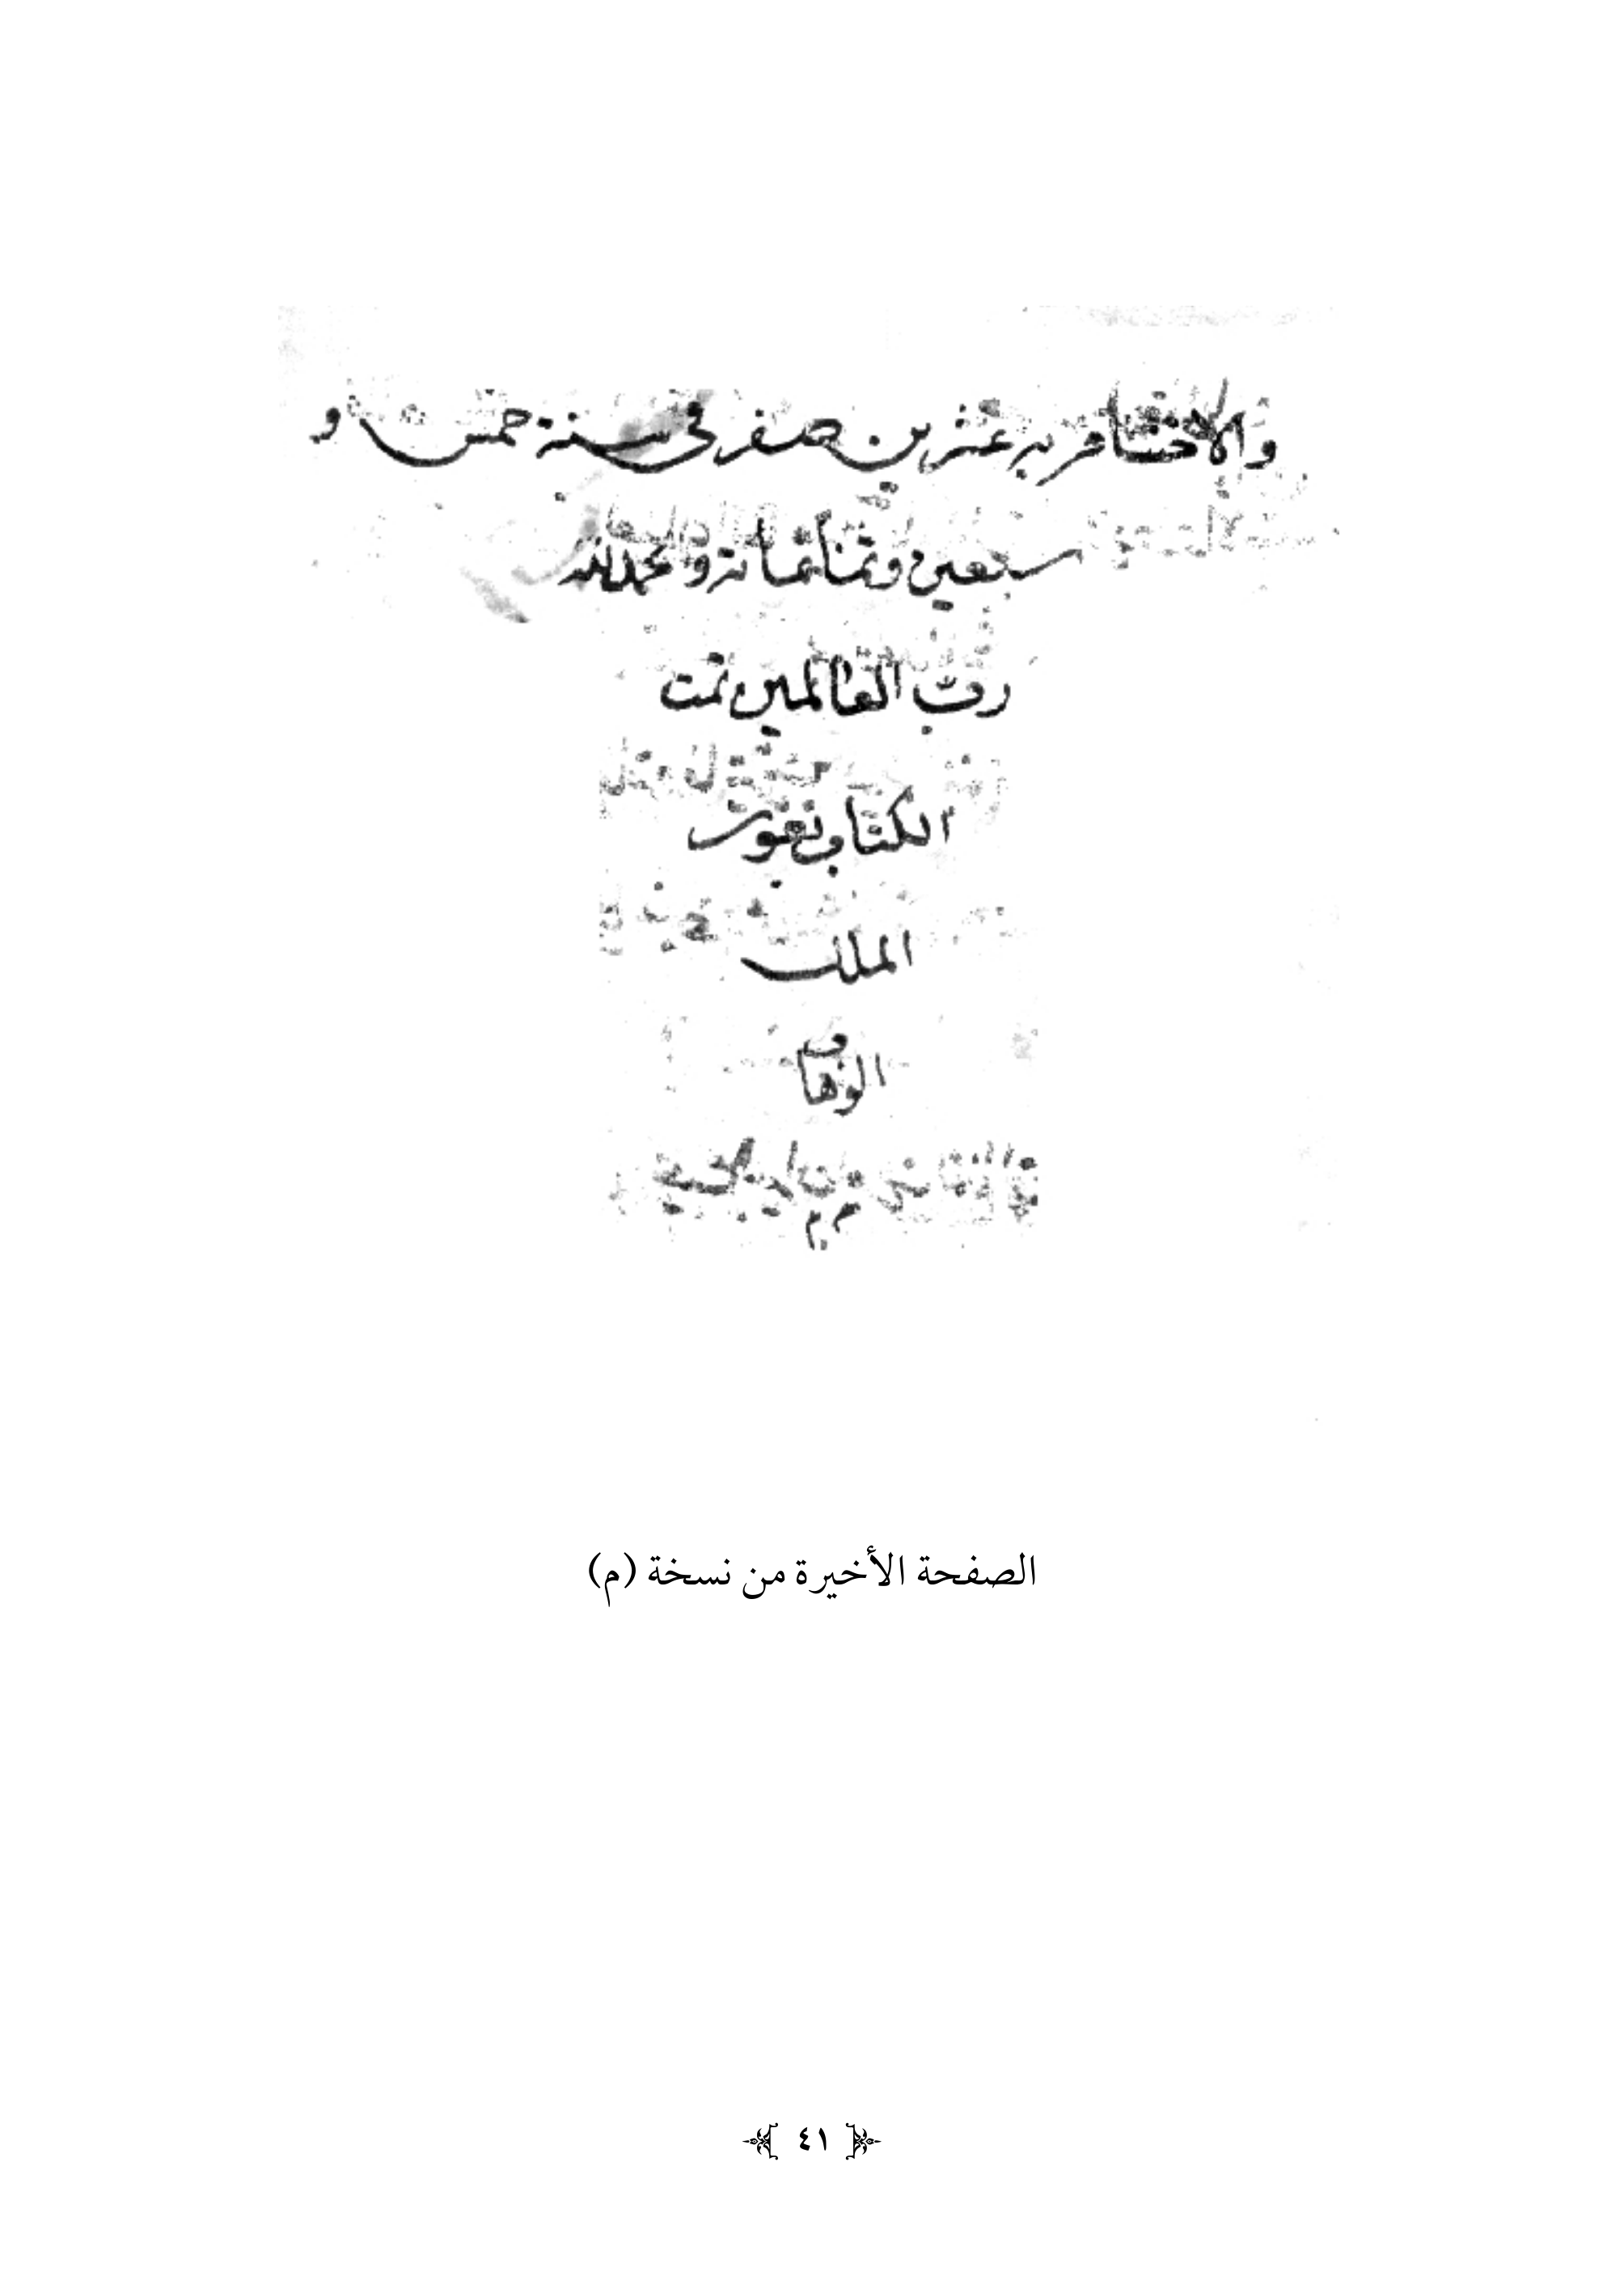 والاختتام قريب عشرين صفر في سنة خمس و
سبعين وثمانمائة والحمد لله
ربّ العالمين تمت
الكتاب بعون
الملك
الوهاب
الصفحة الأخيرة من نسخة (م)
٤١